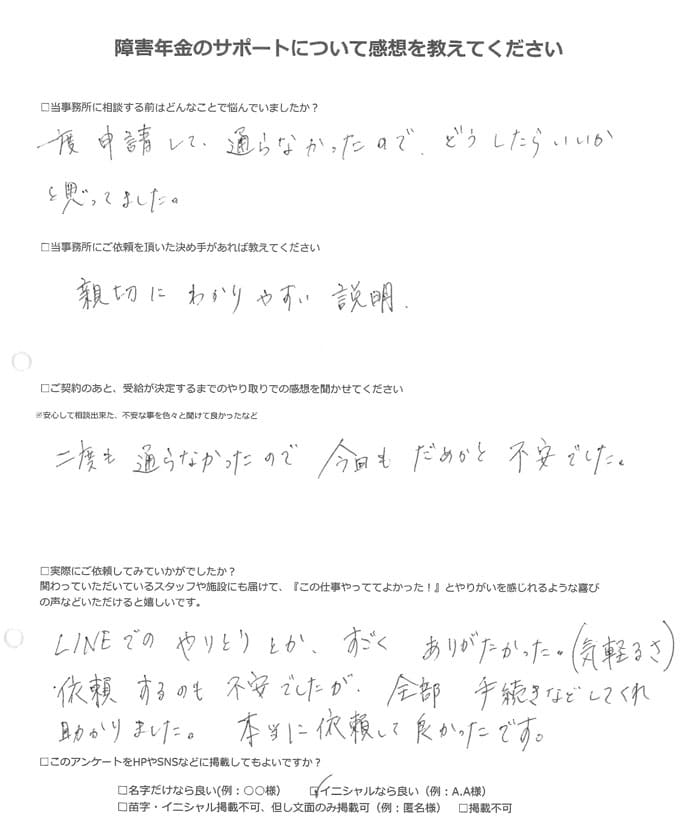 障害年金のサポートについて感想を教えてください
□当事務所に相談する前はどんなことで悩んでいましたか？
一度申請して、通らなかったので、どうしたらいいか
と思ってました。
□当事務所にご依頼を頂いた決め手があれば教えてください
親切にわかりやすい説明.
□ご契約のあと、受給が決定するまでのやり取りでの感想を聞かせてください
※安心して相談出来た、不安な事を色々と聞けて良かったなど
二度も通らなかったので今回もだめかと不安でした。
□実際にご依頼してみていかがでしたか？
関わっていただいているスタッフや施設にも届けて、『この仕事やっててよかった！』とやりがいを感じれるような喜び
の声などいただけると嬉しいです。
LINEでのやりとりとか、すごくありがたかった。(気軽るさ)
依頼するのも不安でしたが、全部手続きなどしてくれ
助かりました。本当に依頼して良かったです。
□このアンケートをHPやSNSなどに掲載してもよいですか？
□名字だけなら良い(例：〇〇様) ☑イニシャルなら良い（例：A.A様）
□苗字・イニシャル掲載不可、但し文面のみ掲載可（例：匿名様） □掲載不可